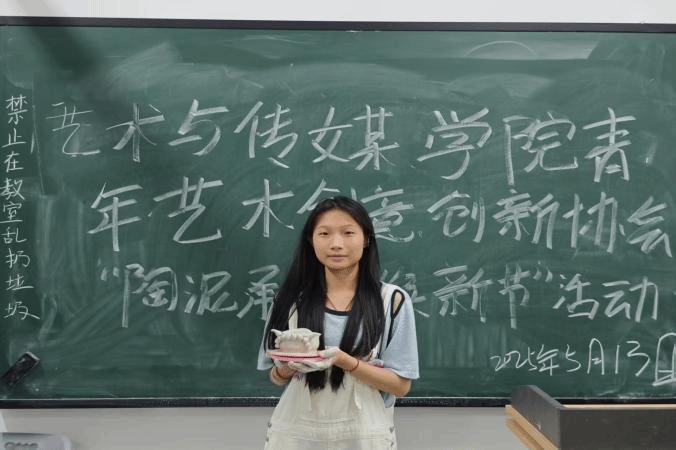 禁止在教室乱扔垃圾
艺术与传媒学院青
年艺术创意创新协会
"陶泥承 新节"活动
2025年5月13日